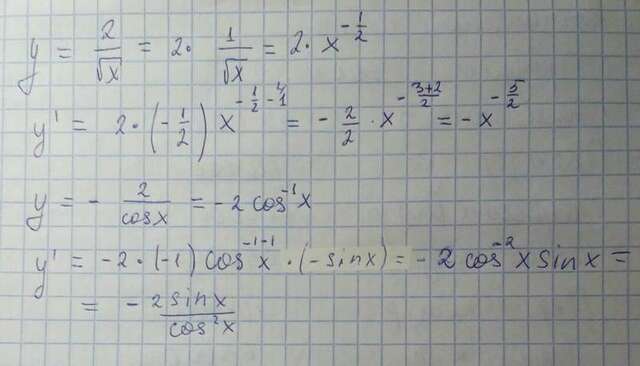 y = 2/√x = 2 · 1/√x = 2 · x^(-1/2)
y' = 2 · (-1/2) x^(-1/2 - 1) = - 2/2 · x^(-(3+2)/2) = - x^(-5/2)
y = - 2/cosx = -2 cos^(-1) x
y' = -2 · (-1) cos^(-1-1) x · (-sinx) = -2 cos^(-2) x sin x =
= - 2 sin x/cos² x